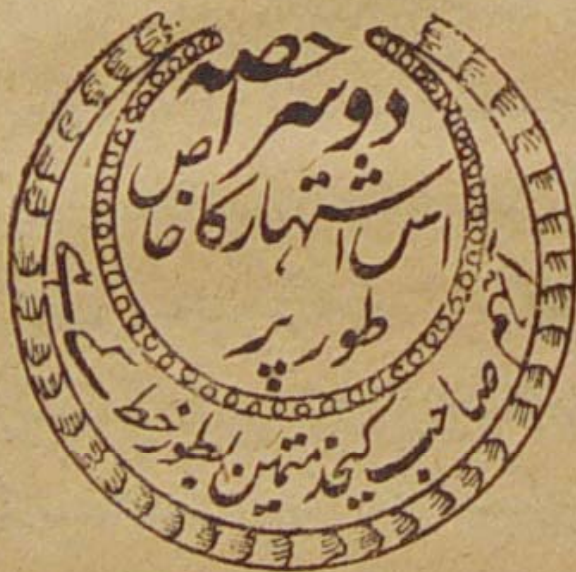 دوسرا حصہ
اس اشتہار کا خاص
طور پر
صاحب کیخدمتمین بطور خط کے ہے